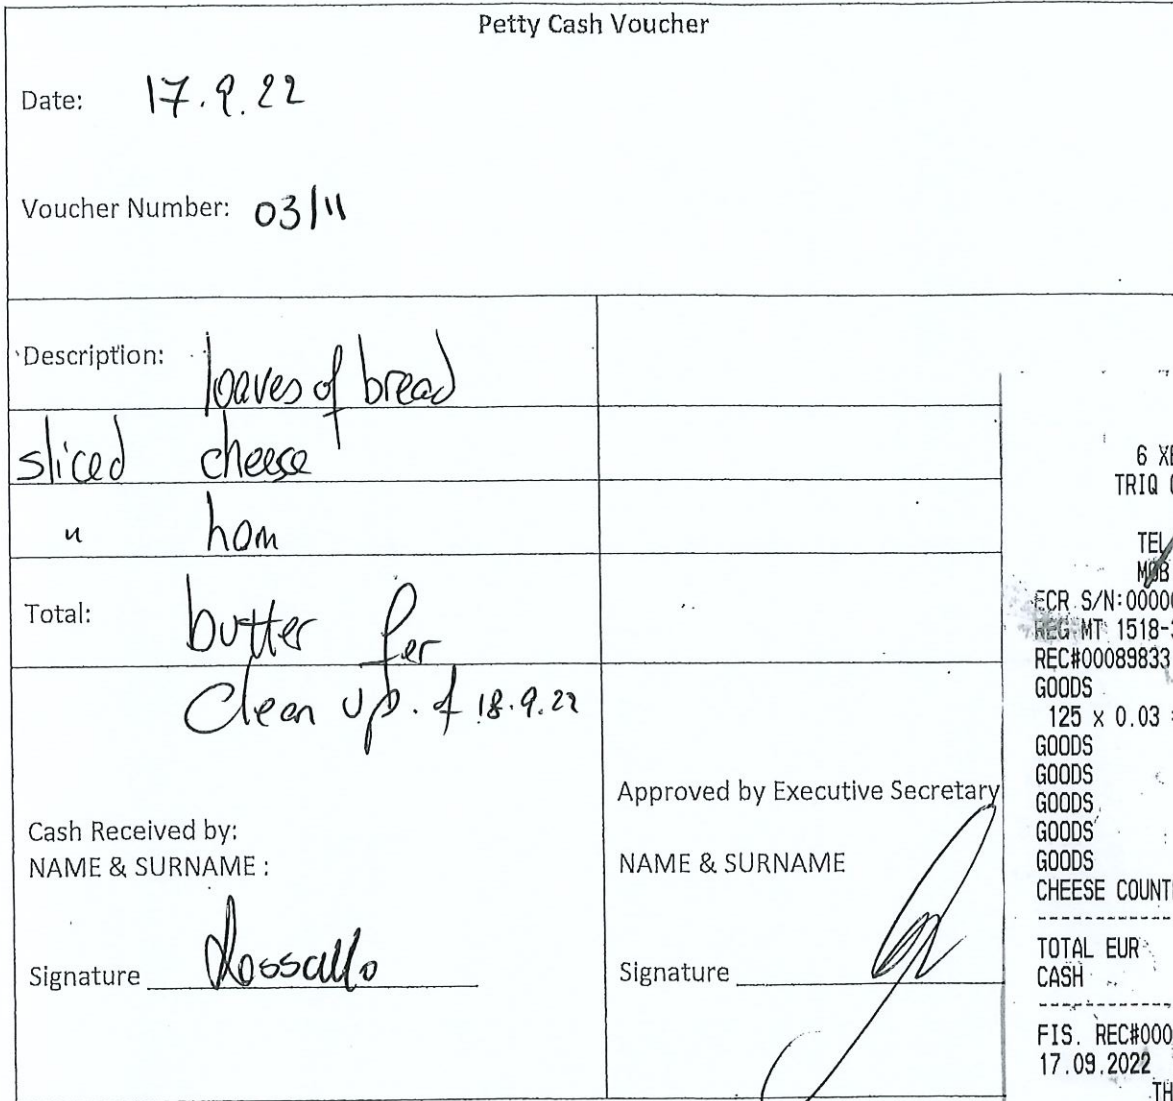 Petty Cash Voucher
Date: 17.9.22
Voucher Number: 03/11
Description: loaves of bread
sliced cheese
" ham
Total: butter for
Clean up. of 18.9.22
Approved by Executive Secretary
Cash Received by:
NAME & SURNAME :
NAME & SURNAME
Signature
Signature
6 XE
TRIQ
TEL
MOB
ECR S/N:00000
REG MT 1518-3
REC#00089833
GOODS
125 x 0.03
GOODS
GOODS
GOODS
GOODS
GOODS
CHEESE COUNT
TOTAL EUR
CASH
FIS. REC#000
17.09.2022
TH